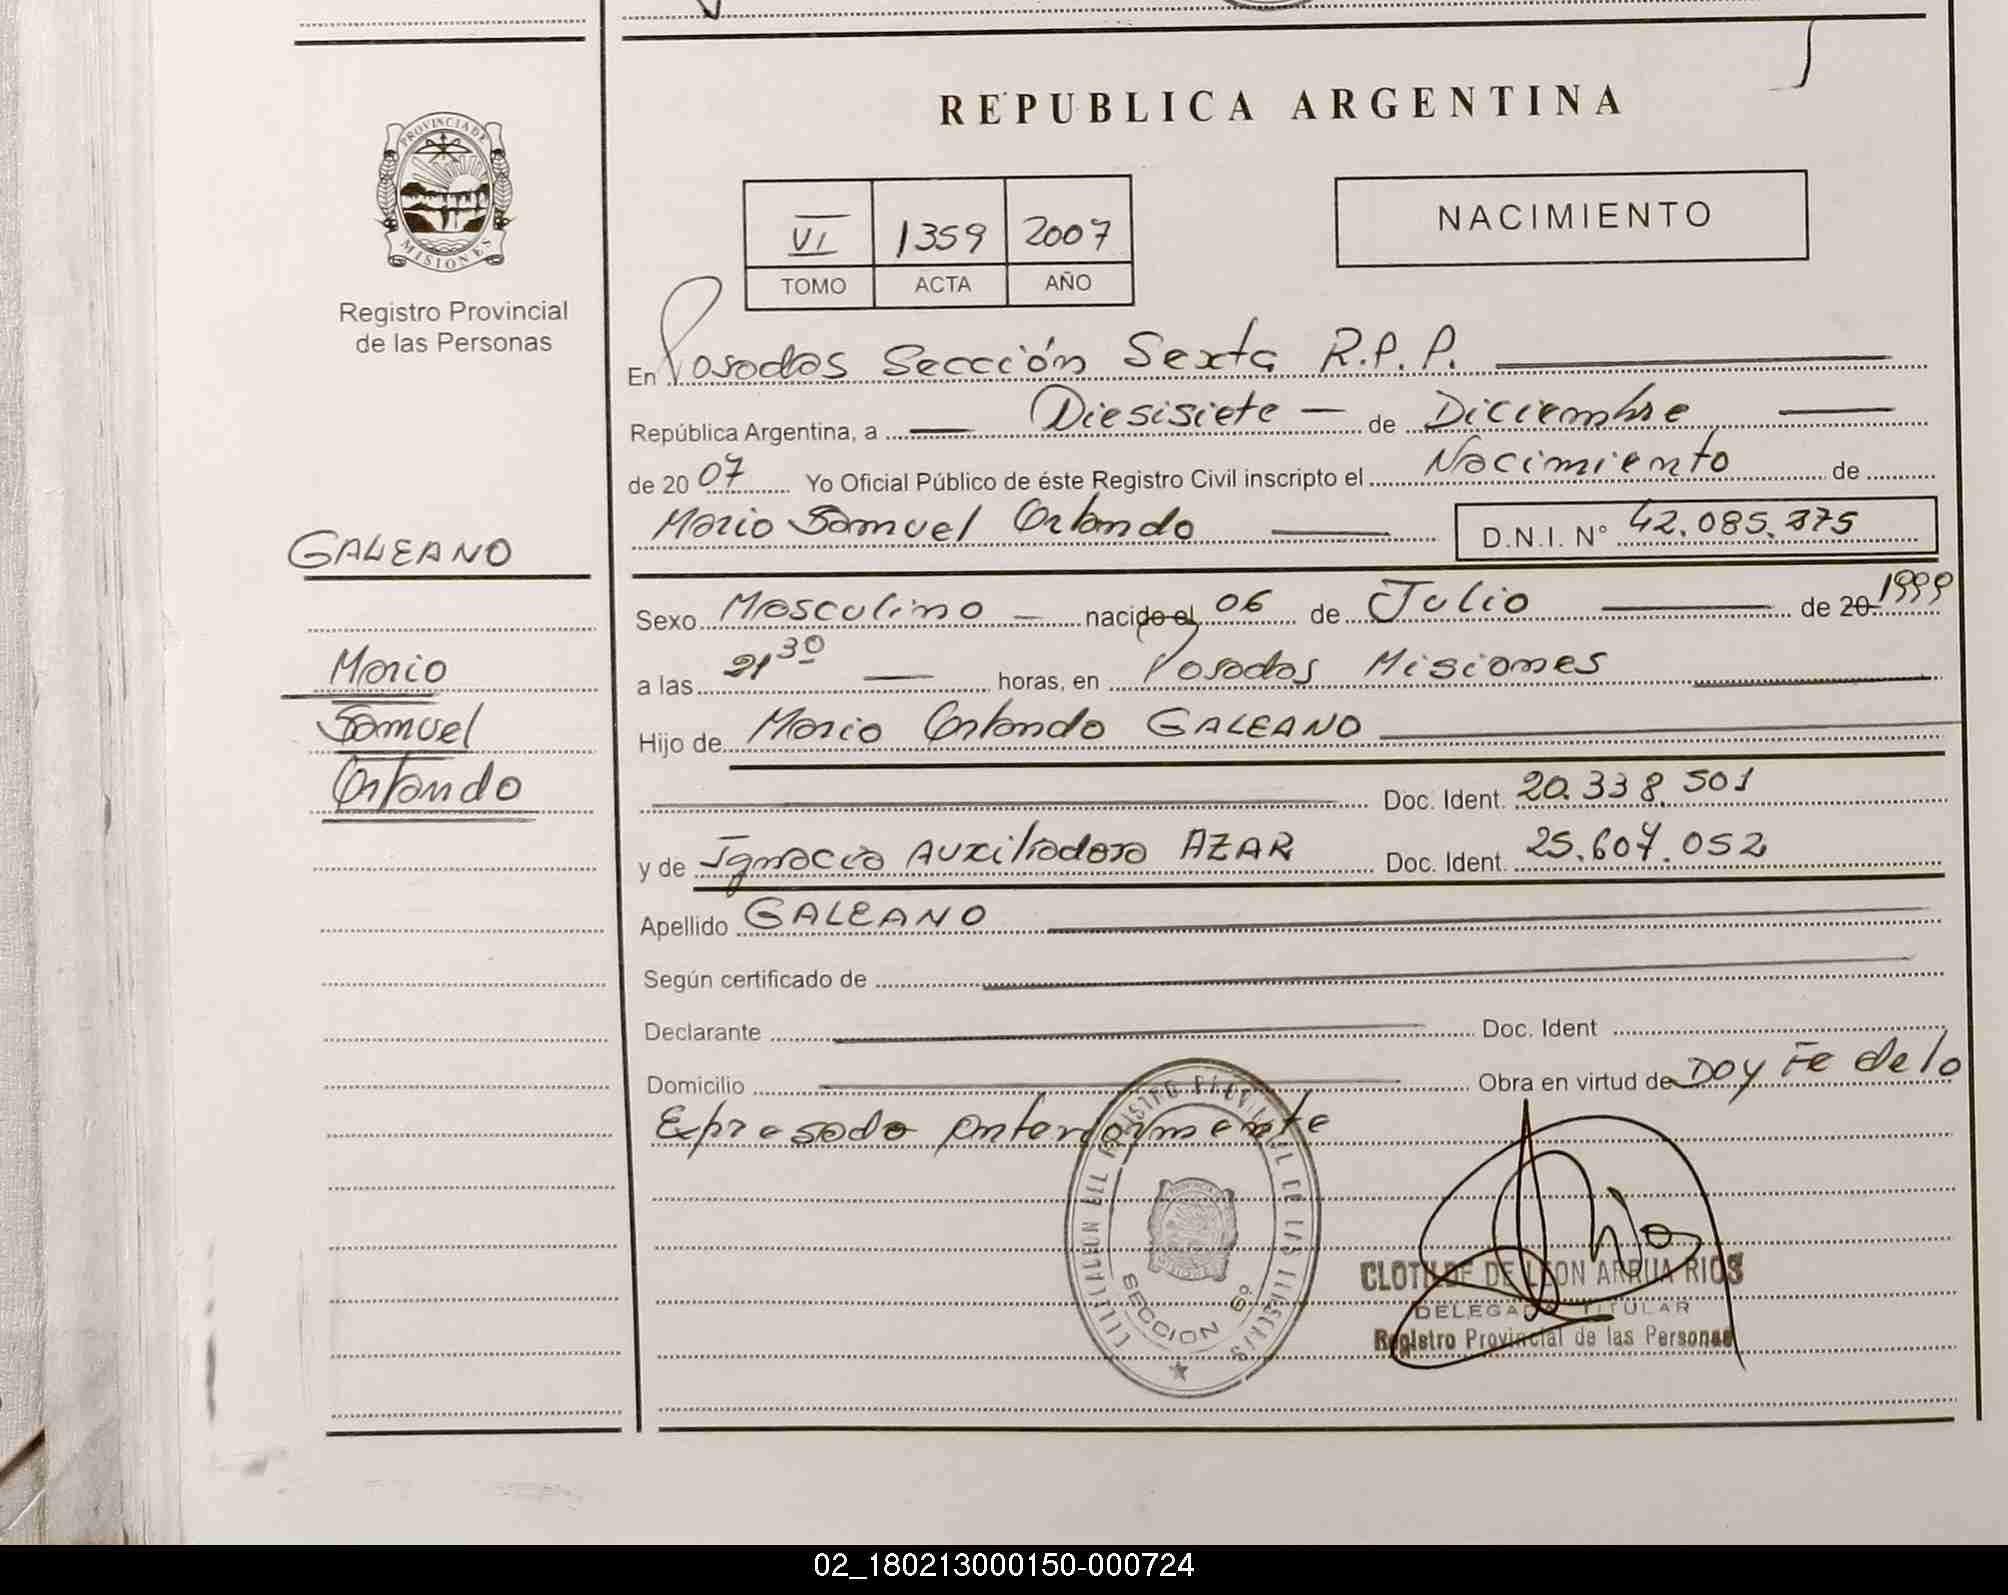 REPUBLICA ARGENTINA
PROVINCIA DE
MISIONES
Registro Provincial
de las Personas
VI 1359 2007
TOMO ACTA AÑO
NACIMIENTO
En Posadas Sección Sexta R.P.P.
República Argentina, a Diesisiete de Diciembre
de 2007 Yo Oficial Público de éste Registro Civil inscripto el Nacimiento de
Mario Samuel Orlando D.N.I. N° 42.085.375
GALEANO
Mario
Samuel
Orlando
Sexo Masculino nacido el 06 de Julio de 20 1999
a las 21 30 horas, en Posadas Misiones
Hijo de Mario Orlando GALEANO
Doc. Ident. 20.338.501
y de Ignacia Auxiliadora AZAR Doc. Ident. 25.607.052
Apellido GALEANO
Según certificado de
Declarante Doc. Ident
Domicilio Obra en virtud de Doy Fe de lo
Expresado anteriormente
SECCION 6º
CLOTILDE DE LEON ARRUA RIOS
DELEGADA TITULAR
Registro Provincial de las Personas
02_180213000150-000724